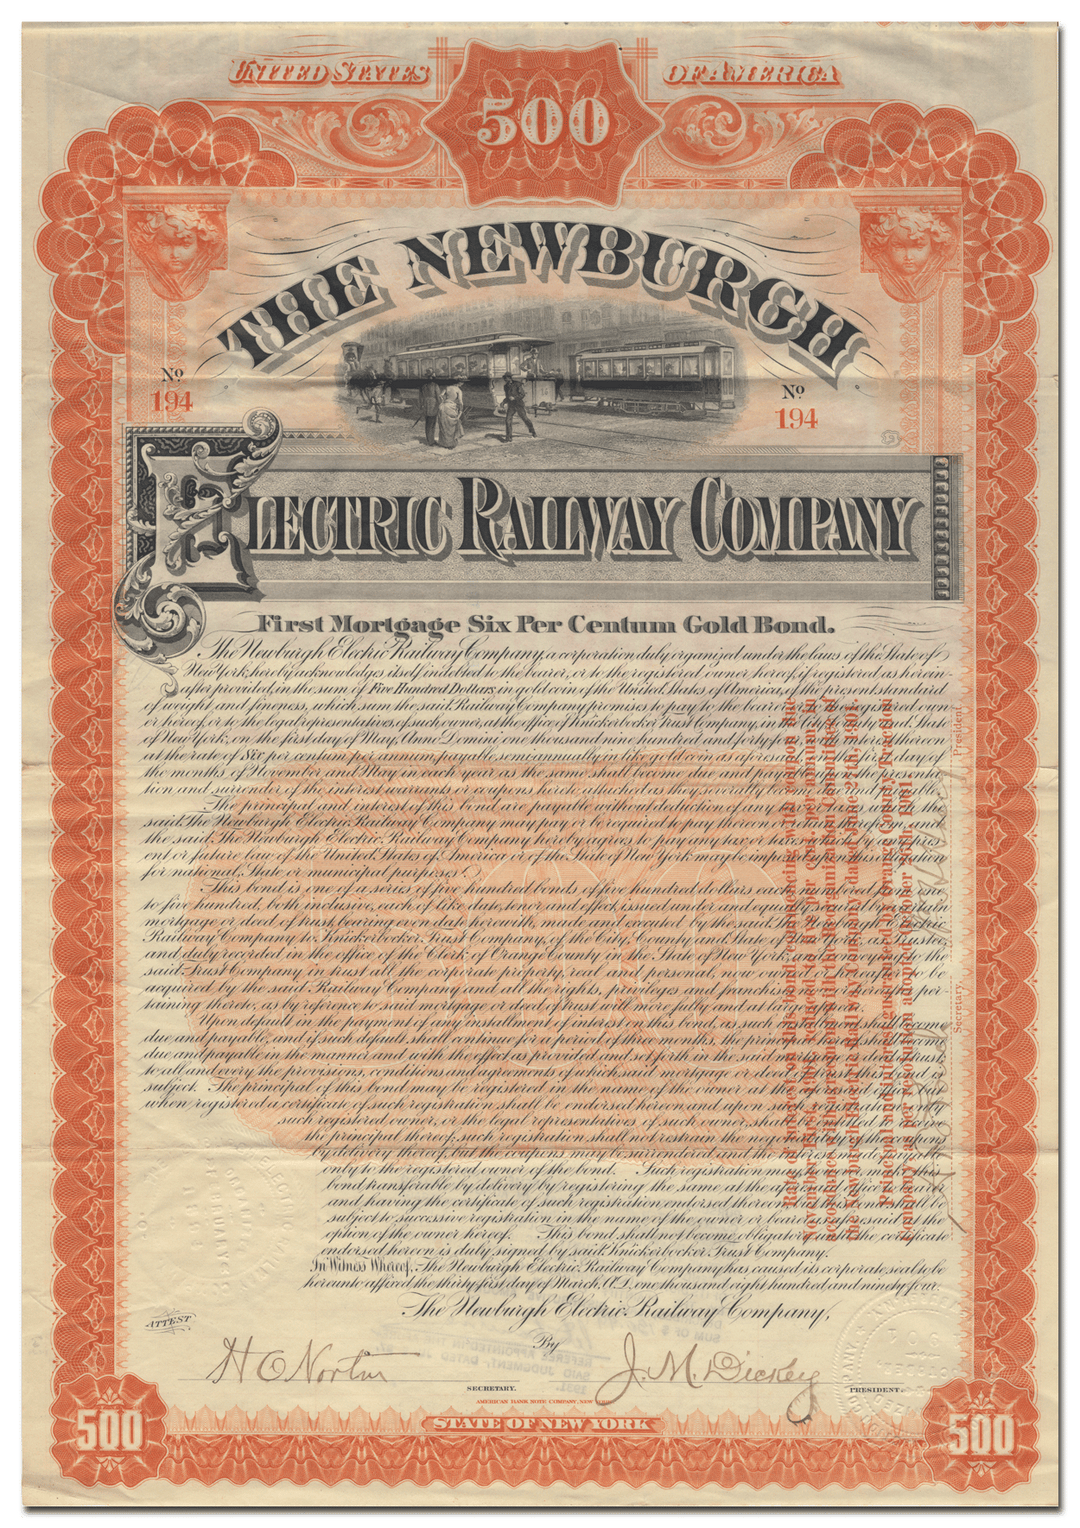 UNITED STATES
OF AMERICA
500
THE NEWBURGH
No
194
No
194
ELECTRIC RAILWAY COMPANY
First Mortgage Six Per Centum Gold Bond.
The Newburgh Electric Railway Company, a corporation duly organized under the laws of the State of
New York, hereby acknowledges itself indebted to the bearer, or to the registered owner hereof, if registered as herein-
after provided, in the sum of Five Hundred Dollars, in gold coin of the United States of America, of the present standard
of weight and fineness, which sum the said Railway Company promises to pay to the bearer or to the registered own-
er hereof, or to the legal representatives of such owner, at the office of Knickerbocker Trust Company, in the City, County and State
of New York, on the first day of May, Anno Domini one thousand nine hundred and forty-four with interest thereon
at the rate of Six per centum per annum, payable semi-annually in like gold coin as aforesaid on the first day of
the months of November and May in each year as the same shall become due and payable upon the presenta-
tion and surrender of the interest warrants or coupons hereto attached as they severally become due and payable.
The principal and interest of this bond are payable without deduction of any tax or taxes which the
said The Newburgh Electric Railway Company may pay or be required to pay thereon or retain therefrom, and
the said The Newburgh Electric Railway Company hereby agrees to pay any tax or taxes which by any pres-
ent or future law of the United States of America or of the State of New York may be imposed upon this obligation
for national, State or municipal purposes.
This bond is one of a series of five hundred bonds of five hundred dollars each, numbered from one
to five hundred, both inclusive, each of like date, tenor and effect, issued under and equally secured by a certain
mortgage or deed of trust, bearing even date herewith, made and executed by the said The Newburgh Electric
Railway Company to Knickerbocker Trust Company, of the City, County and State of New York, as Trustee,
and duly recorded in the office of the Clerk of Orange County in the State of New York, and conveying to the
said Trust Company in trust all the corporate property, real and personal, now owned or hereafter to be
acquired by the said Railway Company and all the rights, privileges and franchises now or hereafter per-
taining thereto, as by reference to said mortgage or deed of trust will more fully and at large appear.
Upon default in the payment of any installment of interest on this bond, as such installment shall become
due and payable, and if such default shall continue for a period of three months, the principal hereof shall become
due and payable in the manner and with the effect as provided and set forth in the said mortgage or deed of trust,
to all and every the provisions, conditions and agreements of which said mortgage or deed of trust this bond is
subject. The principal of this bond may be registered in the name of the owner at the aforesaid office, but
when registered a certificate of such registration shall be endorsed hereon and upon such registration only
such registered owner, or the legal representatives of such owner, shall be entitled to receive
the principal thereof; such registration shall not restrain the negotiability of the coupons
by delivery thereof, but the coupons may be surrendered and the interest made payable
only to the registered owner of the bond. Such registration may, however, make this
bond transferable by delivery by registering the same at the aforesaid office to bearer
and having the certificate of such registration endorsed thereon but this bond shall be
subject to successive registration in the name of the owner or bearer as aforesaid at the
option of the owner hereof. This bond shall not become obligatory until the certificate
endorsed hereon is duly signed by said Knickerbocker Trust Company.
In Witness Whereof, The Newburgh Electric Railway Company has caused its corporate seal to be
hereunto affixed the thirty-first day of March, A.D. one thousand eight hundred and ninety-four.
The Newburgh Electric Railway Company,
ATTEST
By
H C Norton
SECRETARY.
J. M. Dickey
PRESIDENT.
AMERICAN BANK NOTE COMPANY, NEW YORK
STATE OF NEW YORK
500
500
President.
Secretary.